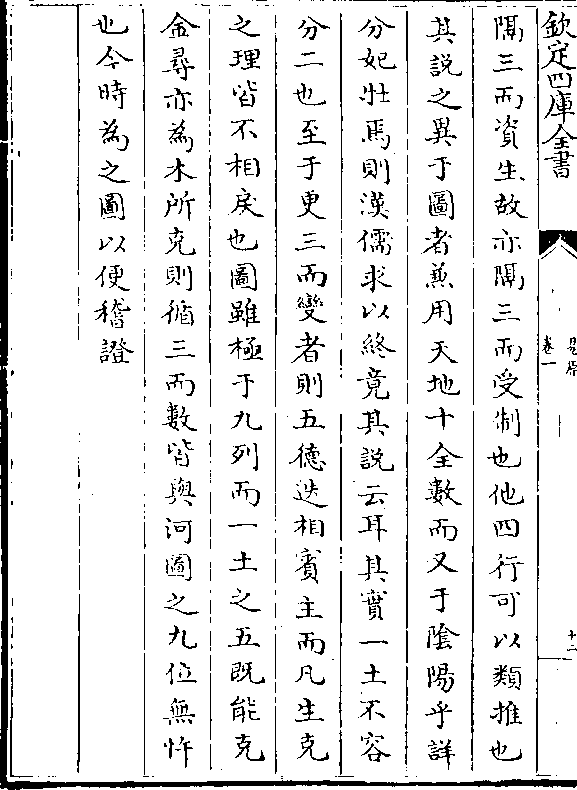 欽定四庫全書
卷一
隔三而資生故亦隔三而受制也他四行可以類推也
其說之異于圖者兼用天地十全數而又于陰陽乎詳
分妃牡焉則漢儒求以終竟其說云耳其實一土不容
分二也至于更三而變者則五德迭相賓主而凡生克
之理皆不相戾也圖雖極于九列而一土之五既能克
金尋亦為木所克則循三而數皆與河圖之九位無忤
也今時為之圖以便稽證